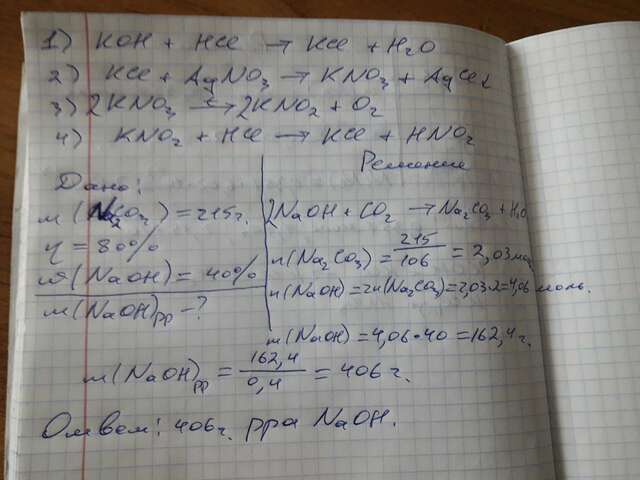 1) KOH + HCl → KCl + H₂O
2) KCl + AgNO₃ → KNO₃ + AgCl↓
3) 2KNO₃ →t 2KNO₂ + O₂
4) KNO₂ + HCl → KCl + HNO₂
Решение
Дано:
m(Na₂CO₃) = 215г.
η = 80%
ω(NaOH) = 40%
m(NaOH)pp - ?
2NaOH + CO₂ → Na₂CO₃ + H₂O
n(Na₂CO₃) = 215/106 = 2,03моль
n(NaOH) = 2n(Na₂CO₃) = 2,03·2 = 4,06 моль.
m(NaOH) = 4,06·40 = 162,4г.
m(NaOH)pp = 162,4/0,4 = 406г.
Ответ: 406г. рра NaOH.